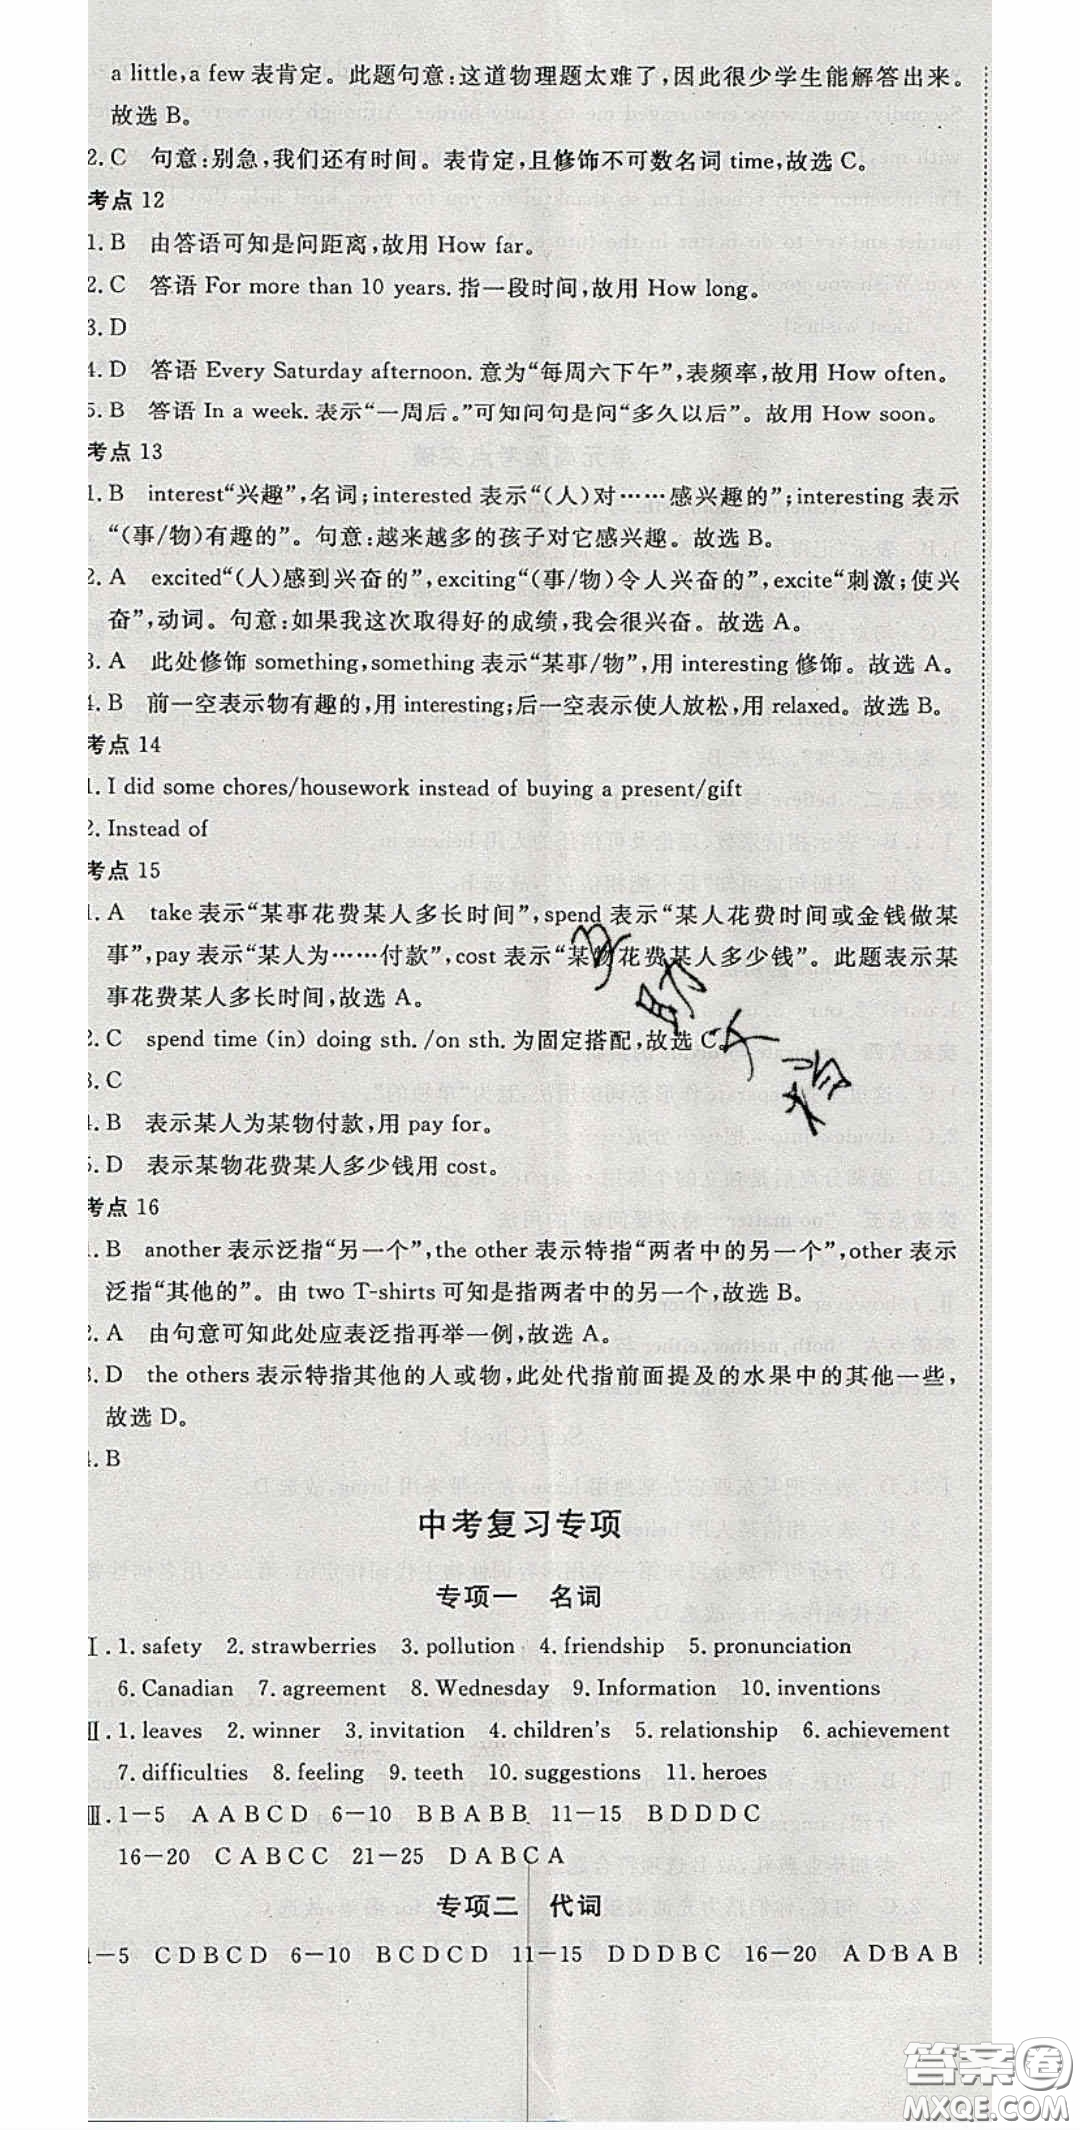 a little,a few表肯定。此题句意:这道物理题太难了,因此很少学生能解答出来。
故选B。
2. C 句意:别急,我们还有时间。表肯定,且修饰不可数名词time,故选C。
考点 12
1. B 由答语可知是问距离,故用 How far。
2. C 答语 For more than 10 years. 指一段时间,故用 How long。
3. D
4. D 答语 Every Saturday afternoon. 意为“每周六下午”,表频率,故用 How often。
5. B 答语 In a week. 表示“一周后。”可知问句是问“多久以后”。故用 How soon。
考点 13
1. B interest“兴趣”,名词;interested 表示“(人)对……感兴趣的”;interesting 表示
“(事/物)有趣的”。句意:越来越多的孩子对它感兴趣。故选 B。
2. A excited“(人)感到兴奋的”,exciting“(事/物)令人兴奋的”,excite“刺激;使兴
奋”,动词。句意:如果我这次取得好的成绩,我会很兴奋。故选 A。
3. A 此处修饰 something,something 表示“某事/物”,用 interesting 修饰。故选 A。
4. B 前一空表示物有趣的,用 interesting;后一空表示使人放松,用 relaxed。故选 B。
考点 14
1. I did some chores/housework instead of buying a present/gift
2. Instead of
考点 15
1. A take 表示“某事花费某人多长时间”,spend 表示“某人花费时间或金钱做某
事”,pay 表示“某人为……付款”,cost 表示“某物花费某人多少钱”。此题表示某
事花费某人多长时间,故选 A。
2. C spend time (in) doing sth. /on sth. 为固定搭配,故选 C。
3. C
4. B 表示某人为某物付款,用 pay for。
5. D 表示某物花费某人多少钱用 cost。
考点 16
1. B another 表示泛指“另一个”,the other 表示特指“两者中的另一个”,other 表示
泛指“其他的”。由 two T-shirts 可知是指两者中的另一个,故选 B。
2. A 由句意可知此处应表泛指再举一例,故选 A。
3. D the others 表示特指其他的人或物,此处代指前面提及的水果中的其他一些,
故选 D。
4. B
中考复习专项
专项一 名词
Ⅰ. 1. safety 2. strawberries 3. pollution 4. friendship 5. pronunciation
6. Canadian 7. agreement 8. Wednesday 9. Information 10. inventions
Ⅱ. 1. leaves 2. winner 3. invitation 4. children's 5. relationship 6. achievement
7. difficulties 8. feeling 9. teeth 10. suggestions 11. heroes
Ⅲ. 1—5 AABCD 6—10 BBABB 11—15 BDDDC
16—20 CABCC 21—25 DABCA
专项二 代词
1—5 CDBCD 6—10 BCDCD 11—15 DDDBC 16—20 ADBAB
答案圈
MXQE.COM